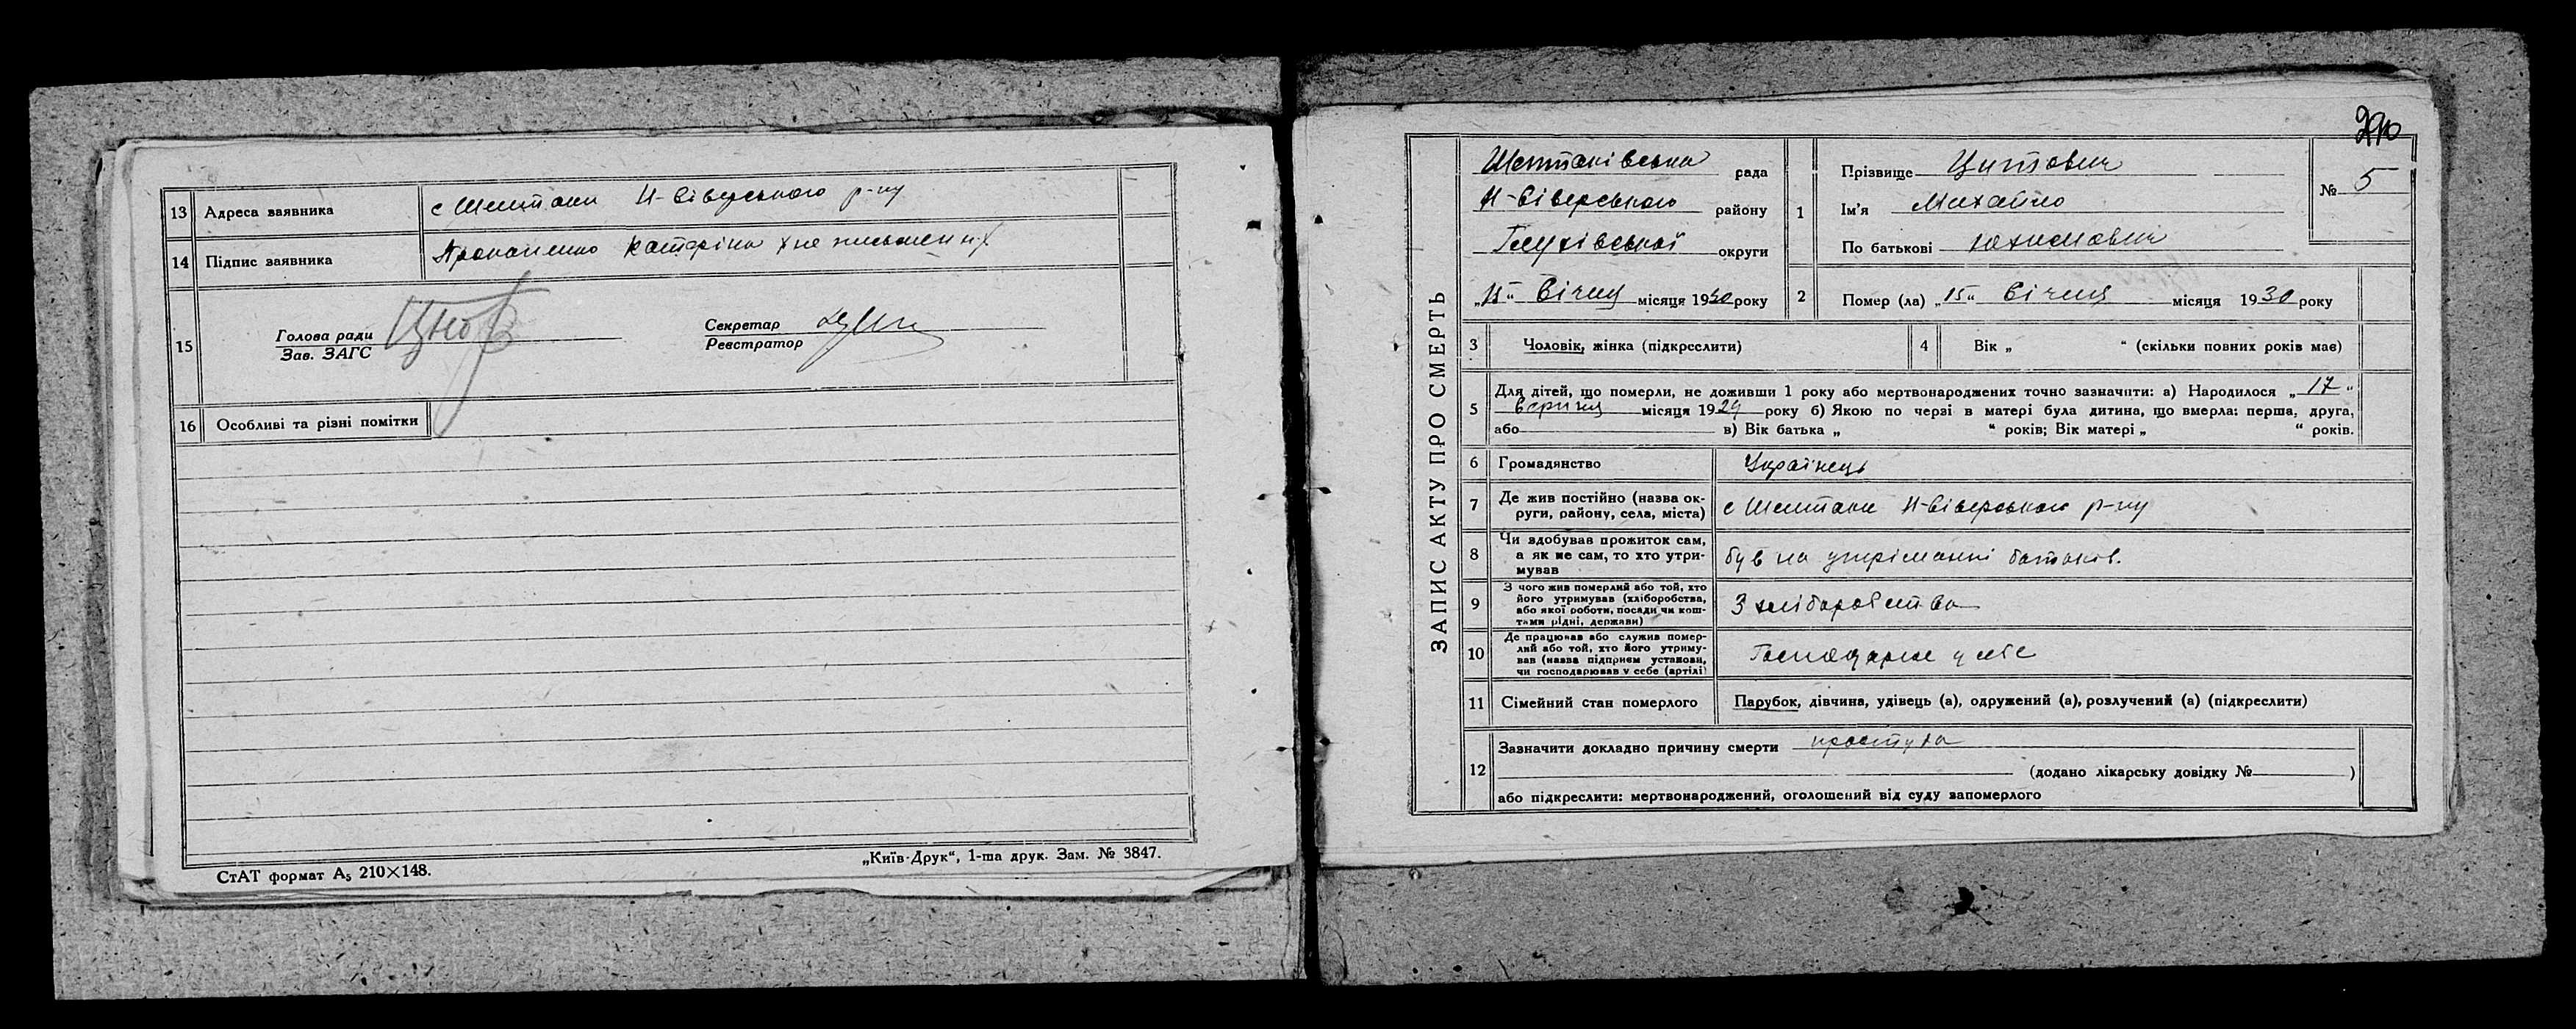 13 Адреса заявника с Шептаки Н-Сіверського р-ну
14 Підпис заявника Прокопенко Катеріна хнеписьменнх
15 Голова ради
Зав. ЗАГС
Секретар
Реєстратор
16 Особливі та різні помітки
СтАТ формат А₅ 210×148.
„Київ-Друк“, 1-ша друк. Зам. № 3847.
ЗАПИС АКТУ ПРО СМЕРТЬ
Шептаківська рада
Н-Сіверського району
Глухівської округи
„15“ Січня місяця 1930 року
1 Прізвище Цитович
Ім'я Михайло
По батькові Юхимович
№ 5
2 Помер (ла) „15“ Січня місяця 1930 року
3 Чоловік, жінка (підкреслити)
4 Вік „ “ (скільки повних років має)
5 Для дітей, що померли, не доживши 1 року або мертвонароджених точно зазначити: а) Народилося „17“
Серпня місяця 1929 року б) Якою по черзі в матері була дитина, що вмерла: перша, друга,
або в) Вік батька „ “ років; Вік матері „ “ років.
6 Громадянство Українець
7 Де жив постійно (назва ок-
руги, району, села, міста) с Шептаки Н-Сіверського р-ну
8 Чи здобував прожиток сам,
а як не сам, то хто утри-
мував був на утріманні батьків.
9 З чого жив померлий або той, хто
його утримував (хліборобства,
або якої роботи, посади чи кош-
тами рідні, держави) З хліборобства
10 Де працював або служив помер-
лий або той, хто його утриму-
вав (назва підприєм установи,
чи господарював у себе (артілі) Господарює у себе
11 Сімейний стан померлого Парубок, дівчина, удівець (а), одружений (а), розлучений (а) (підкреслити)
12 Зазначити докладно причину смерти простуда
(додано лікарську довідку № )
або підкреслити: мертвонароджений, оголошений від суду запомерлого